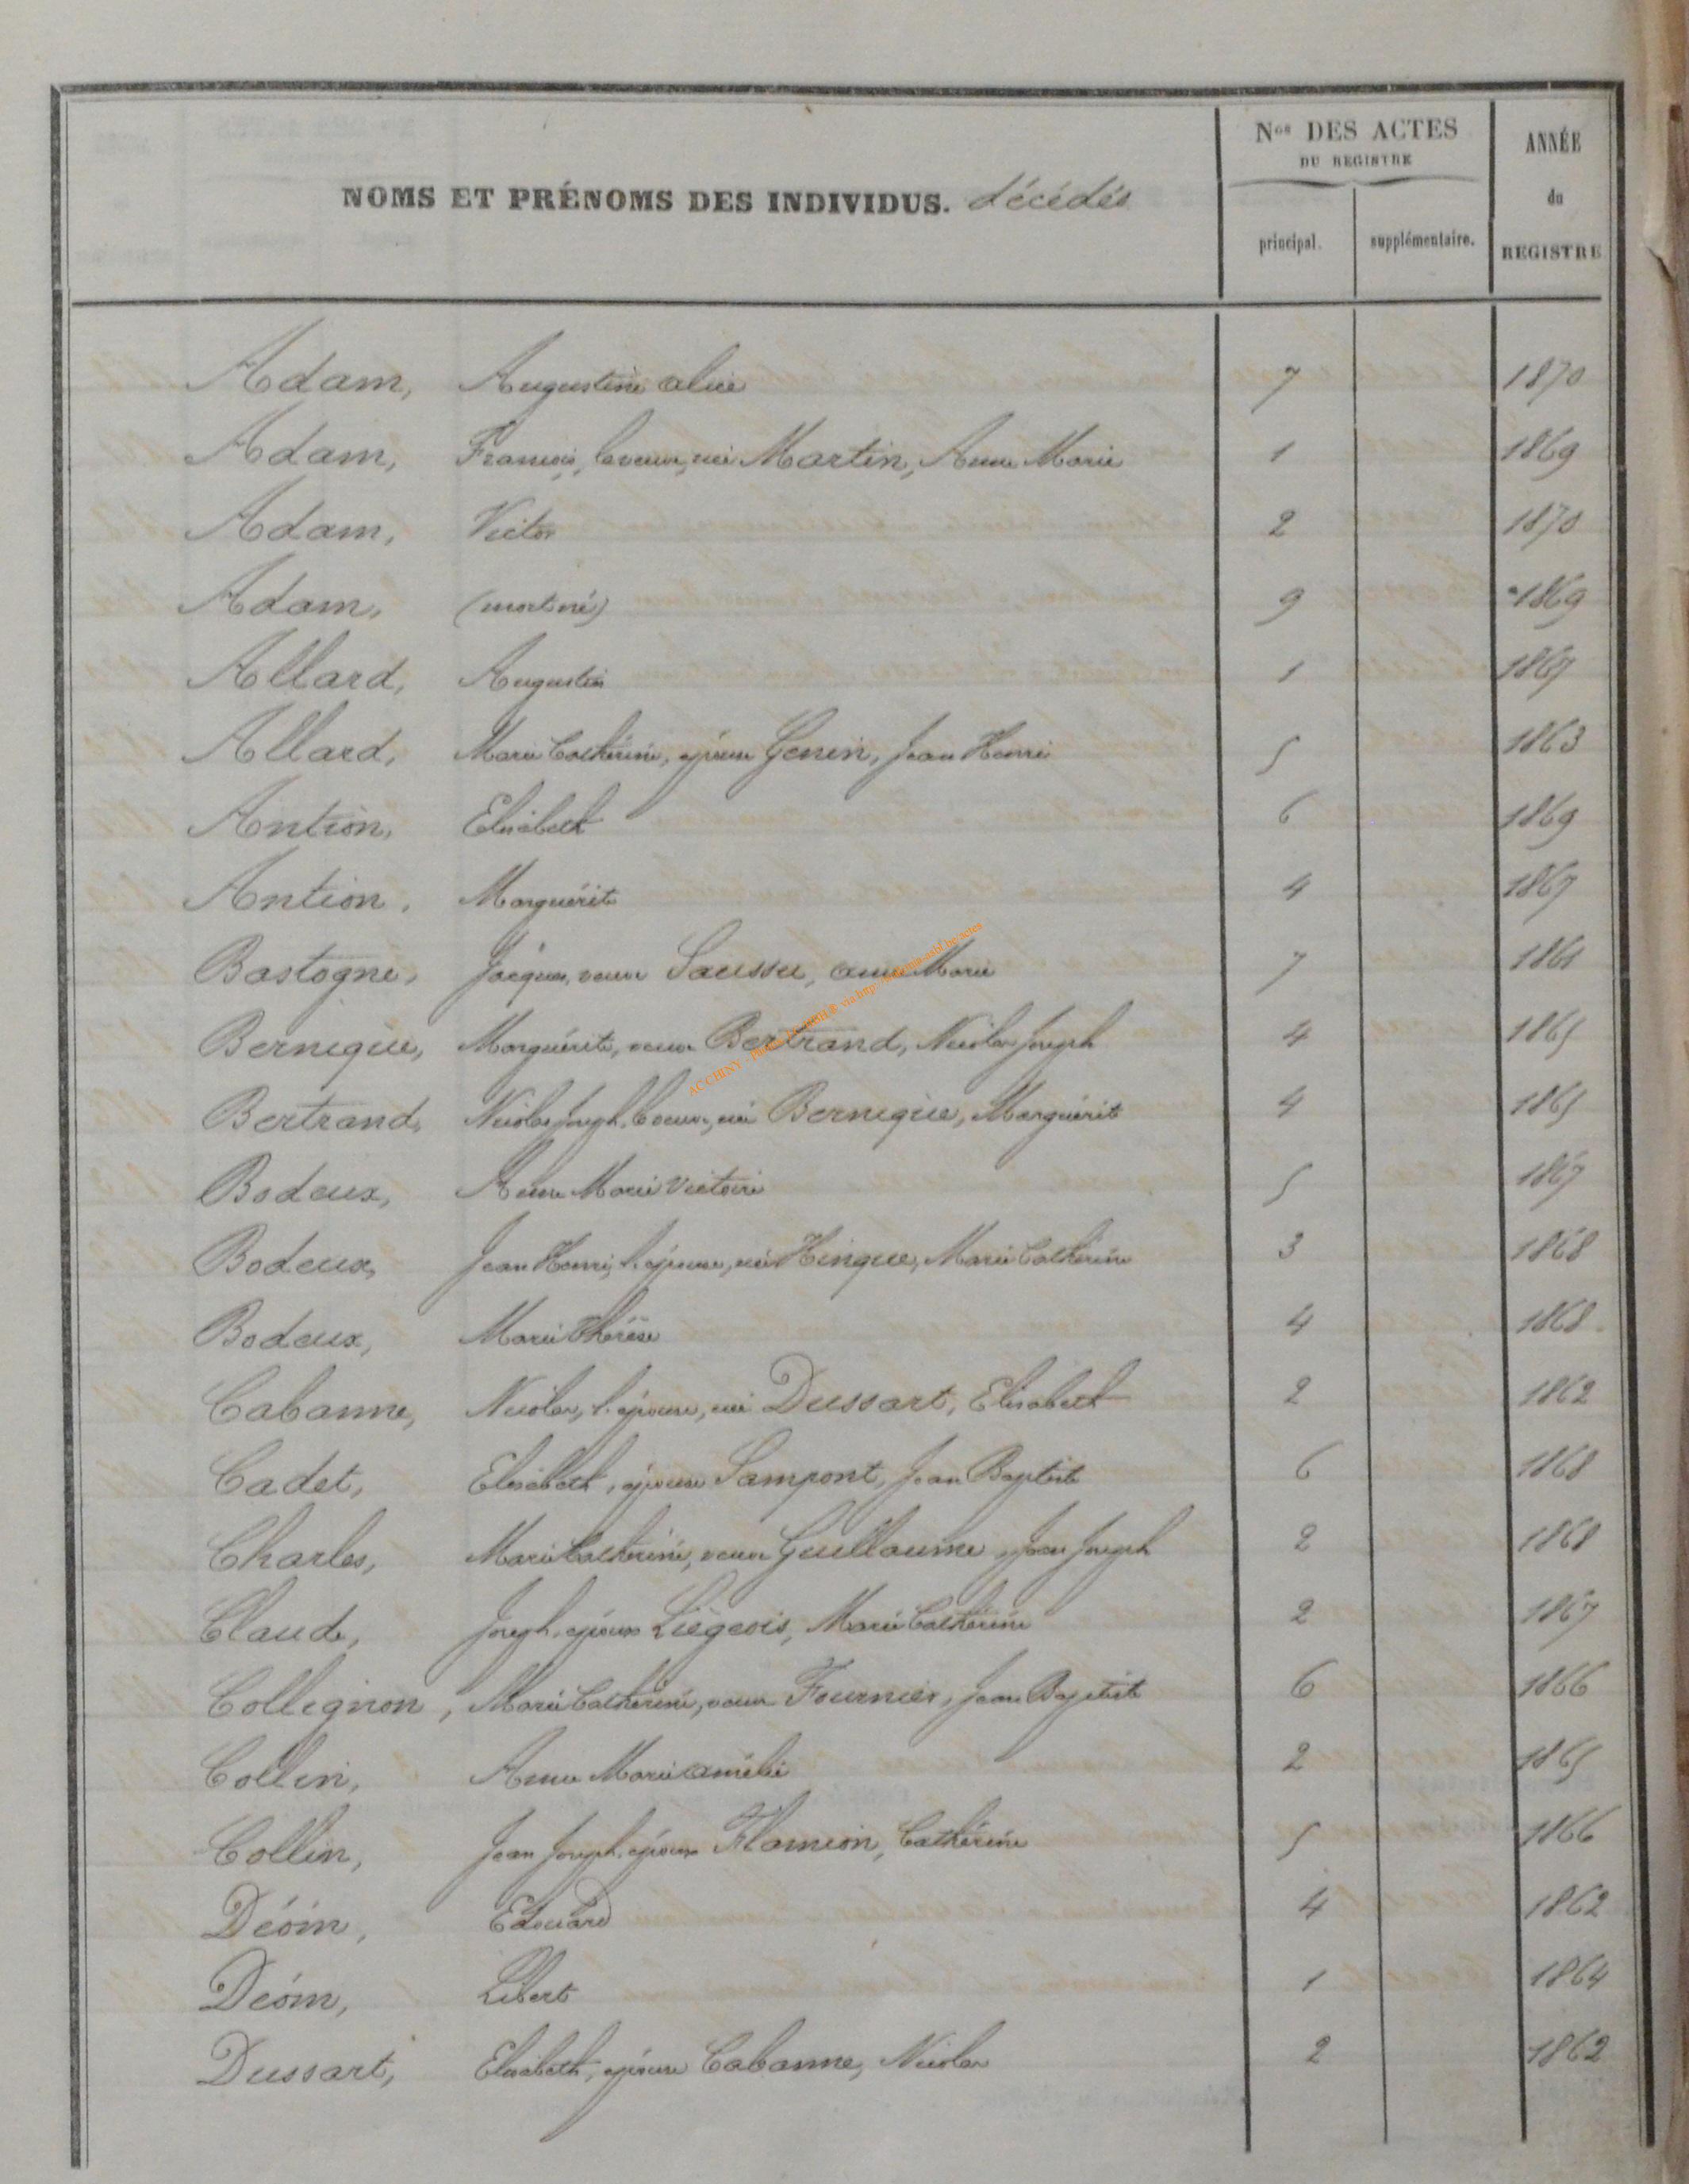 NOMS ET PRÉNOMS DES INDIVIDUS. décédés
Nos DES ACTES
DU REGISTRE
principal.
supplémentaire.
ANNÉE
du
REGISTRE
Adam, Augustine alice 7 1870
Adam, François, la veuve, née Martin, Anne Marie 1 1869
Adam, Victor 2 1870
Adam, (mort né) 9 1869
Allard, Augustin 1 1867
Allard, Marie Cathérine, épouse Genin, Jean Henri 5 1863
Antion, Elisabeth 6 1869
Antion, Marguérite 4 1867
Bastogne, Jacques, veuve Saussu, anne Marie 7 1861
Bernique, Marguérite, veuve Bertrand, Nicolas Joseph 4 1865
Bertrand, Nicolas Joseph, la veuve, née Bernique, Marguérite 4 1865
Bodeux, Anne Marie Victoire 5 1867
Bodeux, Jean Henri, l'épouse, née Hinque, Marie Cathérine 3 1868
Bodeux, Marie Thérèse 4 1868
Cabanne, Nicolas, l'épouse, née Dussart, Elisabeth 2 1862
Cadet, Elisabeth, épouse Sampont, Jean Baptiste 6 1868
Charles, Marie Cathérine, veuve Guillaume, Jean Joseph 2 1868
Claude, Joseph, époux Liégeois, Marie Cathérine 2 1867
Collignon, Marie Cathérine, veuve Fournier, Jean Baptiste 6 1866
Collin, Anne Marie amélie 2 1865
Collin, Jean Joseph, époux Flamion, Cathérine 5 1866
Déom, Edouard 4 1862
Déom, Libert 1 1864
Dussart, Elisabeth, épouse Cabanne, Nicolas 2 1862